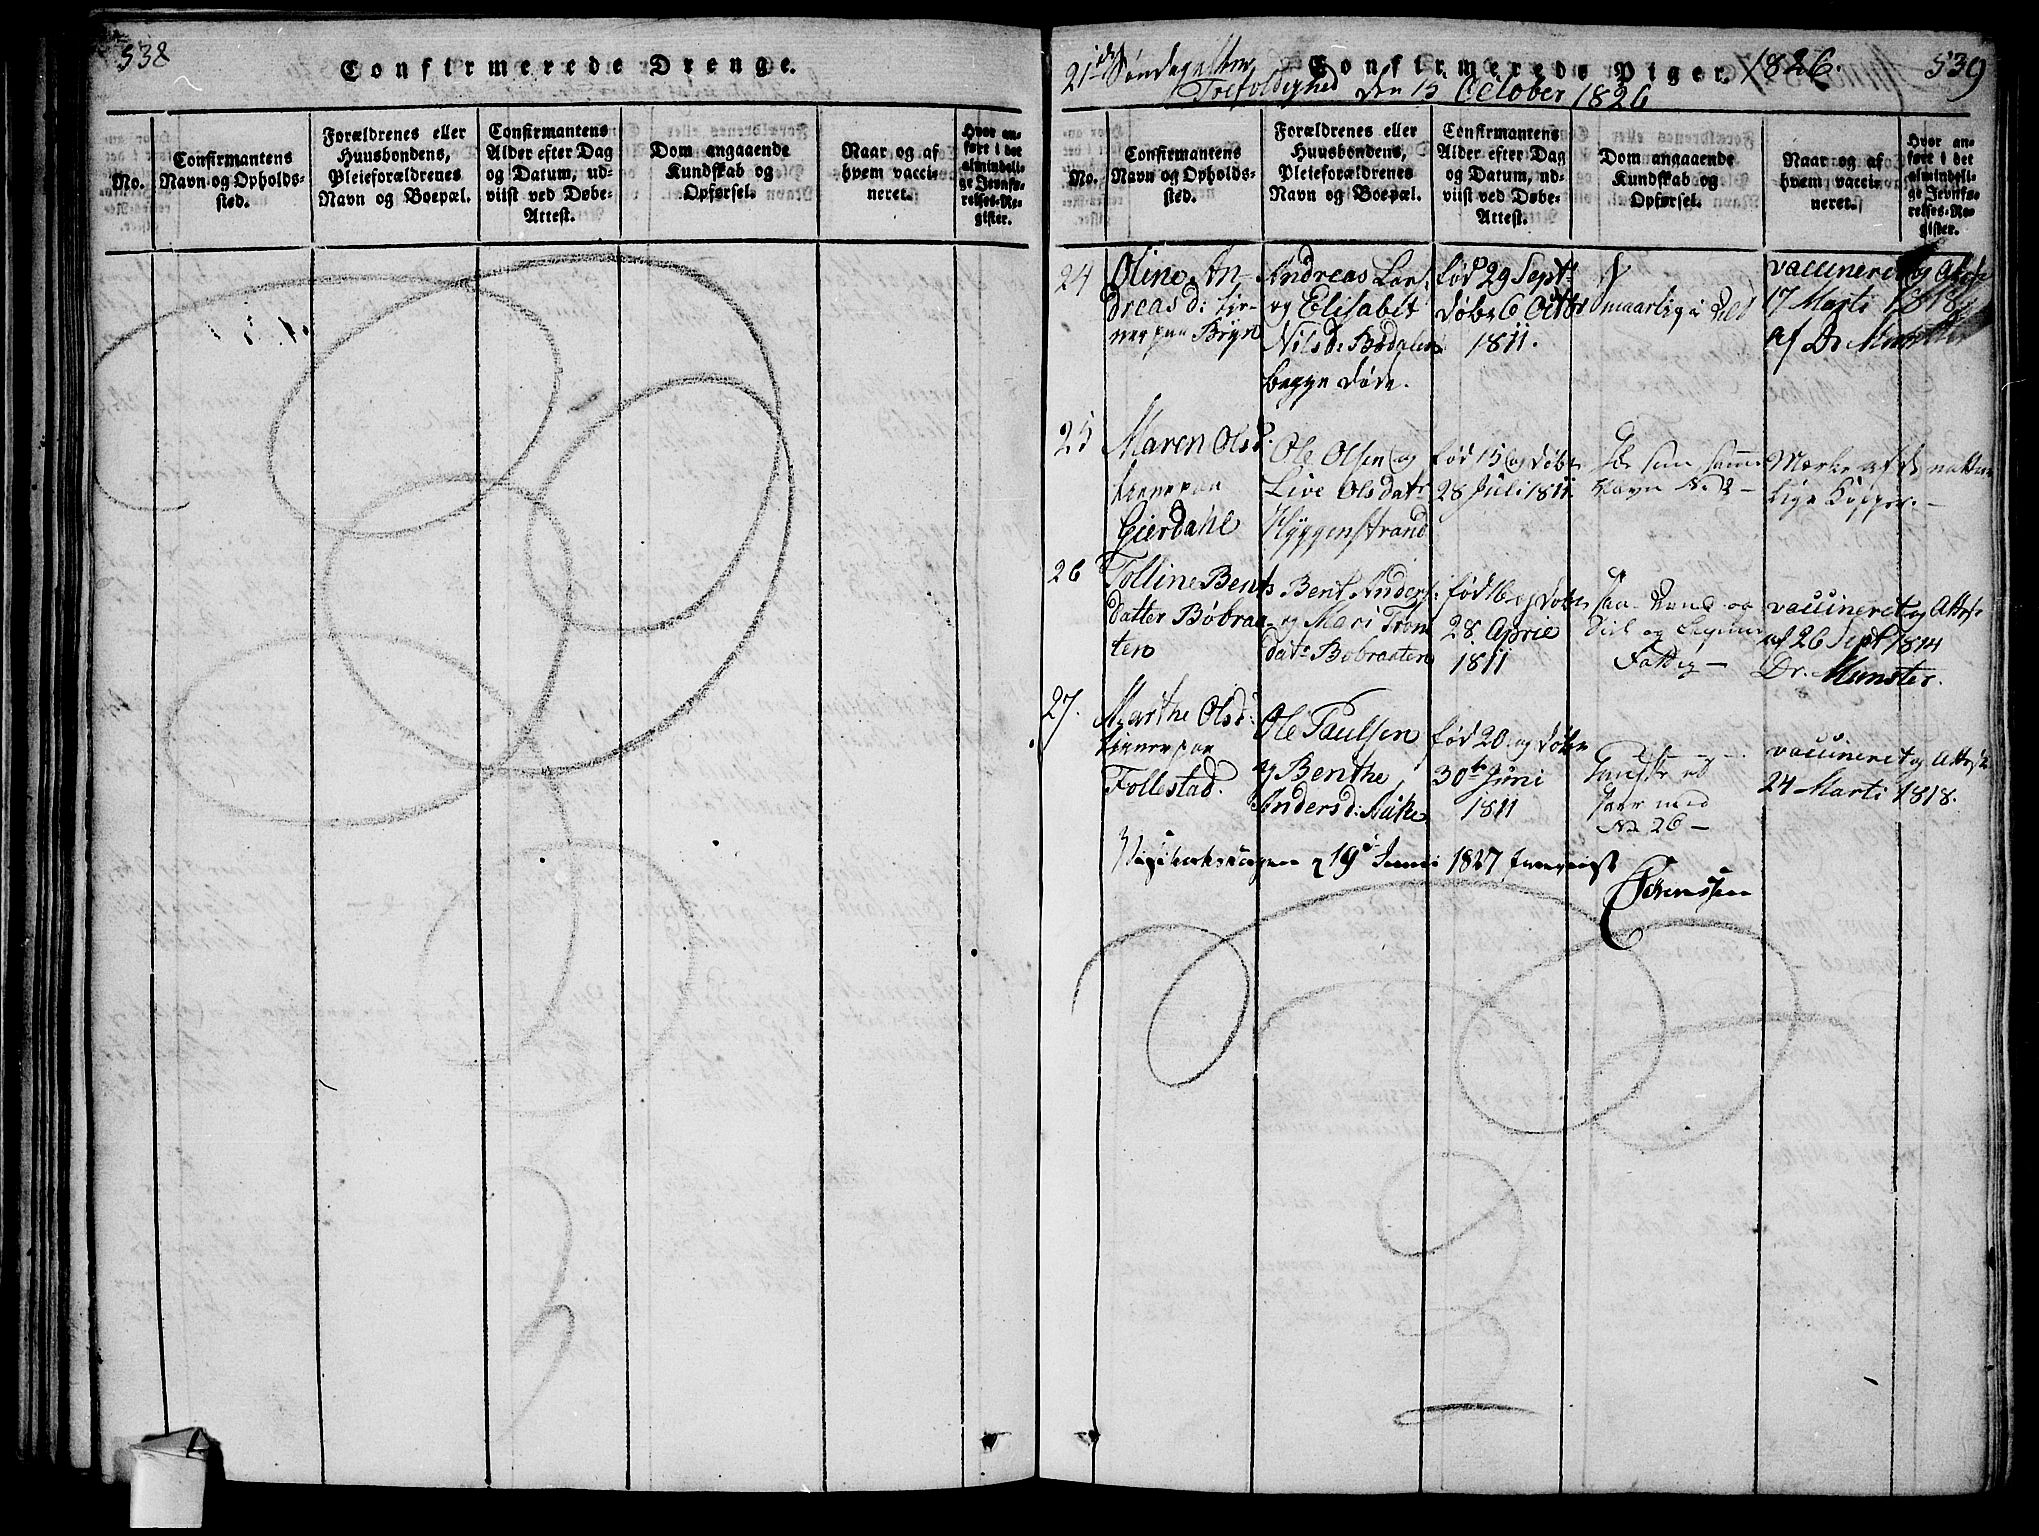 538
Confirmerede Drenge.
No.
Confirmantens
Navn og Opholds-
sted.
Forældrenes eller
Huusbondens,
Pleieforældrenes
Navn og Boepæl.
Confirmantens
Alder efter Dag
og Datum, ud-
viist ved Døbe-
Attest.
Dom angaaende
Kundskab og
Opførsel.
Naar og af
hvem vacci-
neret.
Hvor an-
ført i det
almindeli-
ge Jevnfø-
relses-Re-
gister.
21de Søndag efter
Trefoldighed den 15 October 1826
Confirmerede Piger. 1826.
539
No.
Confirmantens
Navn og Opholds-
sted.
Forældrenes eller
Huusbondens,
Pleieforældrenes
Navn og Boepæl.
Confirmantens
Alder efter Dag
og Datum, ud-
viist ved Døbe-
Attest.
Dom angaaende
Kundskab og
Opførsel.
Naar og af
hvem vacci-
neret.
Hvor an-
ført i det
almindeli-
ge Jevnfø-
relses-Re-
gister.
24
Oline An-
dreasd:
paa Bryn
Andreas Lars:
og Elisabet
Nilsd: Bødalen
begge døde.
fød 29 Sept:
døbt 6 Octbr
1811.
vaccineret og Attest
17 Marti 1818
af Dr. Munster
25
Maren Olsd.
Gierdahl
Ole Olsen og
Live Olsdatr
Hyggenstrand
fød 15 og døbt
28 Juli 1811
som samme
No 2 -
Mærke af de natur
lige Kopper. -
26
Tolline Bents
datter Bøbraa-
ten
Bent Anders:
og Mari Trom
datr Bøbraaten
fød 16 og døbt
28 April
1811
og
og
vaccineret og Attest
af 26 Sept 1814
Dr. Munster.
27.
Marthe Olsd:
paa
Follestad.
Ole Paulsen
og Benthe
Andersd: Aake
fød 20 og døbt
30te Juni
1811
med
No 26 -
vaccineret og Attest
24 Marti 1818.
19de Juni 1827
Sørenssen